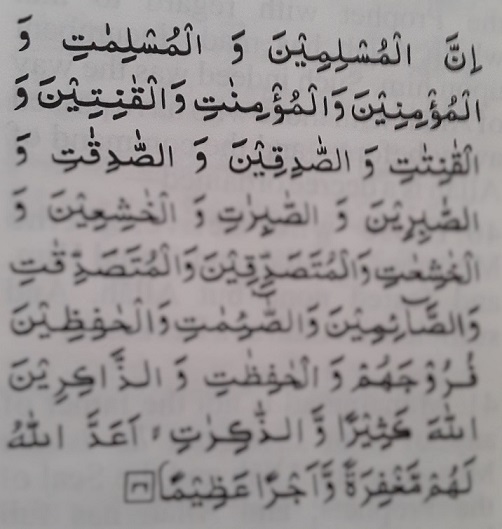 اِنَّ الْمُسْلِمِيْنَ وَ الْمُسْلِمٰتِ وَ
الْمُؤْمِنِيْنَ وَالْمُؤْمِنٰتِ وَالْقٰنِتِيْنَ وَ
الْقٰنِتٰتِ وَ الصّٰدِقِيْنَ وَ الصّٰدِقٰتِ وَ
الصّٰبِرِيْنَ وَ الصّٰبِرٰتِ وَ الْخٰشِعِيْنَ وَ
الْخٰشِعٰتِ وَالْمُتَصَدِّقِيْنَ وَالْمُتَصَدِّقٰتِ
وَالصَّآئِمِيْنَ وَالصّٰٓئِمٰتِ وَالْحٰفِظِيْنَ
فُرُوْجَهُمْ وَ الْحٰفِظٰتِ وَ الذَّاكِرِيْنَ
اللّٰهَ كَثِيْرًا وَّ الذّٰكِرٰتِ ۙ اَعَدَّ اللّٰهُ
لَهُمْ مَّغْفِرَةً وَّاَجْرًا عَظِيْمًا